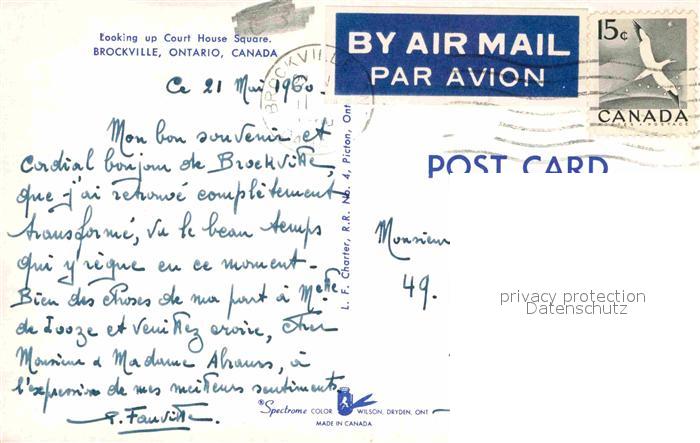 Looking up Court House Square.
BROCKVILLE, ONTARIO, CANADA
BY AIR MAIL
PAR AVION
15¢
POSTES · POSTAGE
CANADA
BROCKVILLE
POST CARD
Ce 21 Mai 1960.
Mon bon souvenir et
cordial bonjour de Brockville,
que j'ai retrouvé complètement
transformé, vu le beau temps
qui y règne en ce moment.
Bien des choses de ma part à Melle
de Looze et veuillez croire, cher
Monsieur & Madame Abraus, à
l'expression de mes meilleurs sentiments.
Fauville.
L. F. Charter, R.R. No. 4, Picton, Ont
Monsieur
49.
privacy protection
Datenschutz
®Spectrome COLOR WILSON, DRYDEN, ONT
MADE IN CANADA